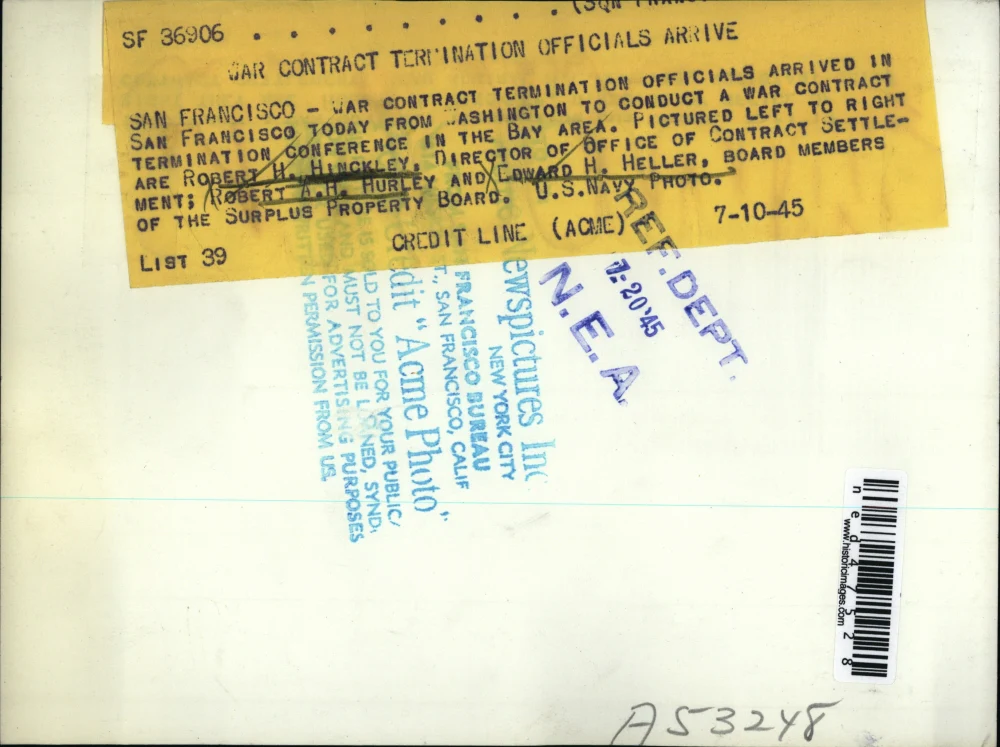 SF 36906 . . . . . . . . . (SAN
WAR CONTRACT TERMINATION OFFICIALS ARRIVE
SAN FRANCISCO - WAR CONTRACT TERMINATION OFFICIALS ARRIVED IN
SAN FRANCISCO TODAY FROM WASHINGTON TO CONDUCT A WAR CONTRACT
TERMINATION CONFERENCE IN THE BAY AREA. PICTURED LEFT TO RIGHT
ARE ROBERT H. HINCKLEY, DIRECTOR OF OFFICE OF CONTRACT SETTLE-
MENT; ROBERT A.H. HURLEY AND EDWARD H. HELLER, BOARD MEMBERS
OF THE SURPLUS PROPERTY BOARD. U.S.NAVY PHOTO.
LIST 39 CREDIT LINE (ACME) 7-10-45
REF. DEPT.
7-20'45
N.E.A.
Newspictures Inc
NEW YORK CITY
FRANCISCO BUREAU
ST., SAN FRANCISCO, CALIF
Credit "Acme Photo"
IS SOLD TO YOU FOR YOUR PUBLIC/
AND MUST NOT BE LOANED, SYNDI
FOR ADVERTISING PURPOSES
PERMISSION FROM US.
ned47528
www.historicimages.com
A53248